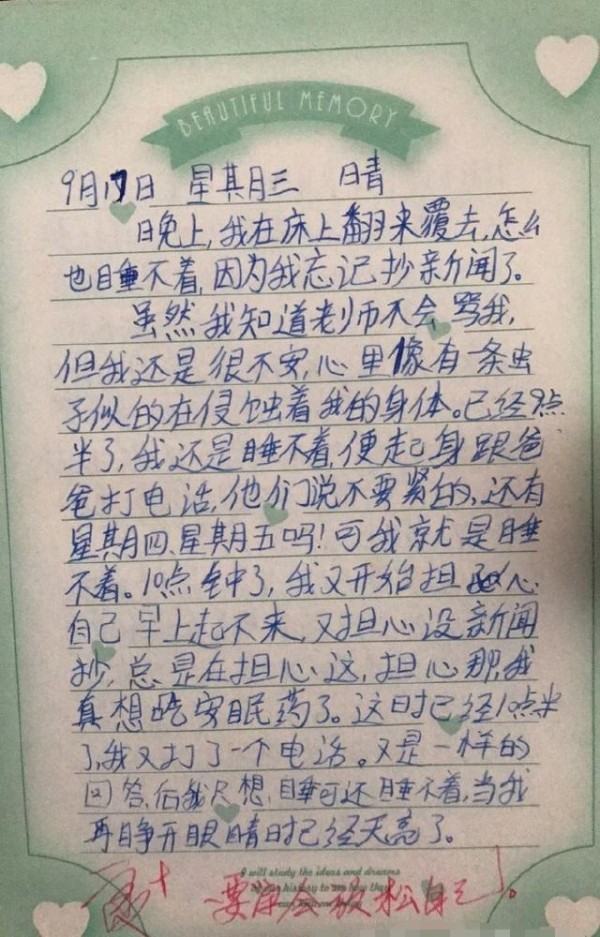 BEAUTIFUL MEMORY
9月17日 星期三 晴
晚上,我在床上翻来覆去,怎么
也睡不着,因为我忘记抄新闻了。
虽然我知道老师不会骂我,
但我还是很不安,心里像有一条虫
子似的在侵蚀着我的身体。已经9点
半了,我还是睡不着,便起身跟爸
爸打电话,他们说不要紧的,还有
星期四、星期五吗!可我就是睡
不着。10点钟了,我又开始担心
自己早上起不来,又担心没新闻
抄,总是在担心这,担心那,我
真想吃安眠药了。这时已经10点半
了,我又打了一个电话。又是一样的
回答,后我只想,睡可还睡不着,当我
再睁开眼睛时已经天亮了。
I will study the ideas and dreams
of our history to see how they
优+ 要学会放松自己。